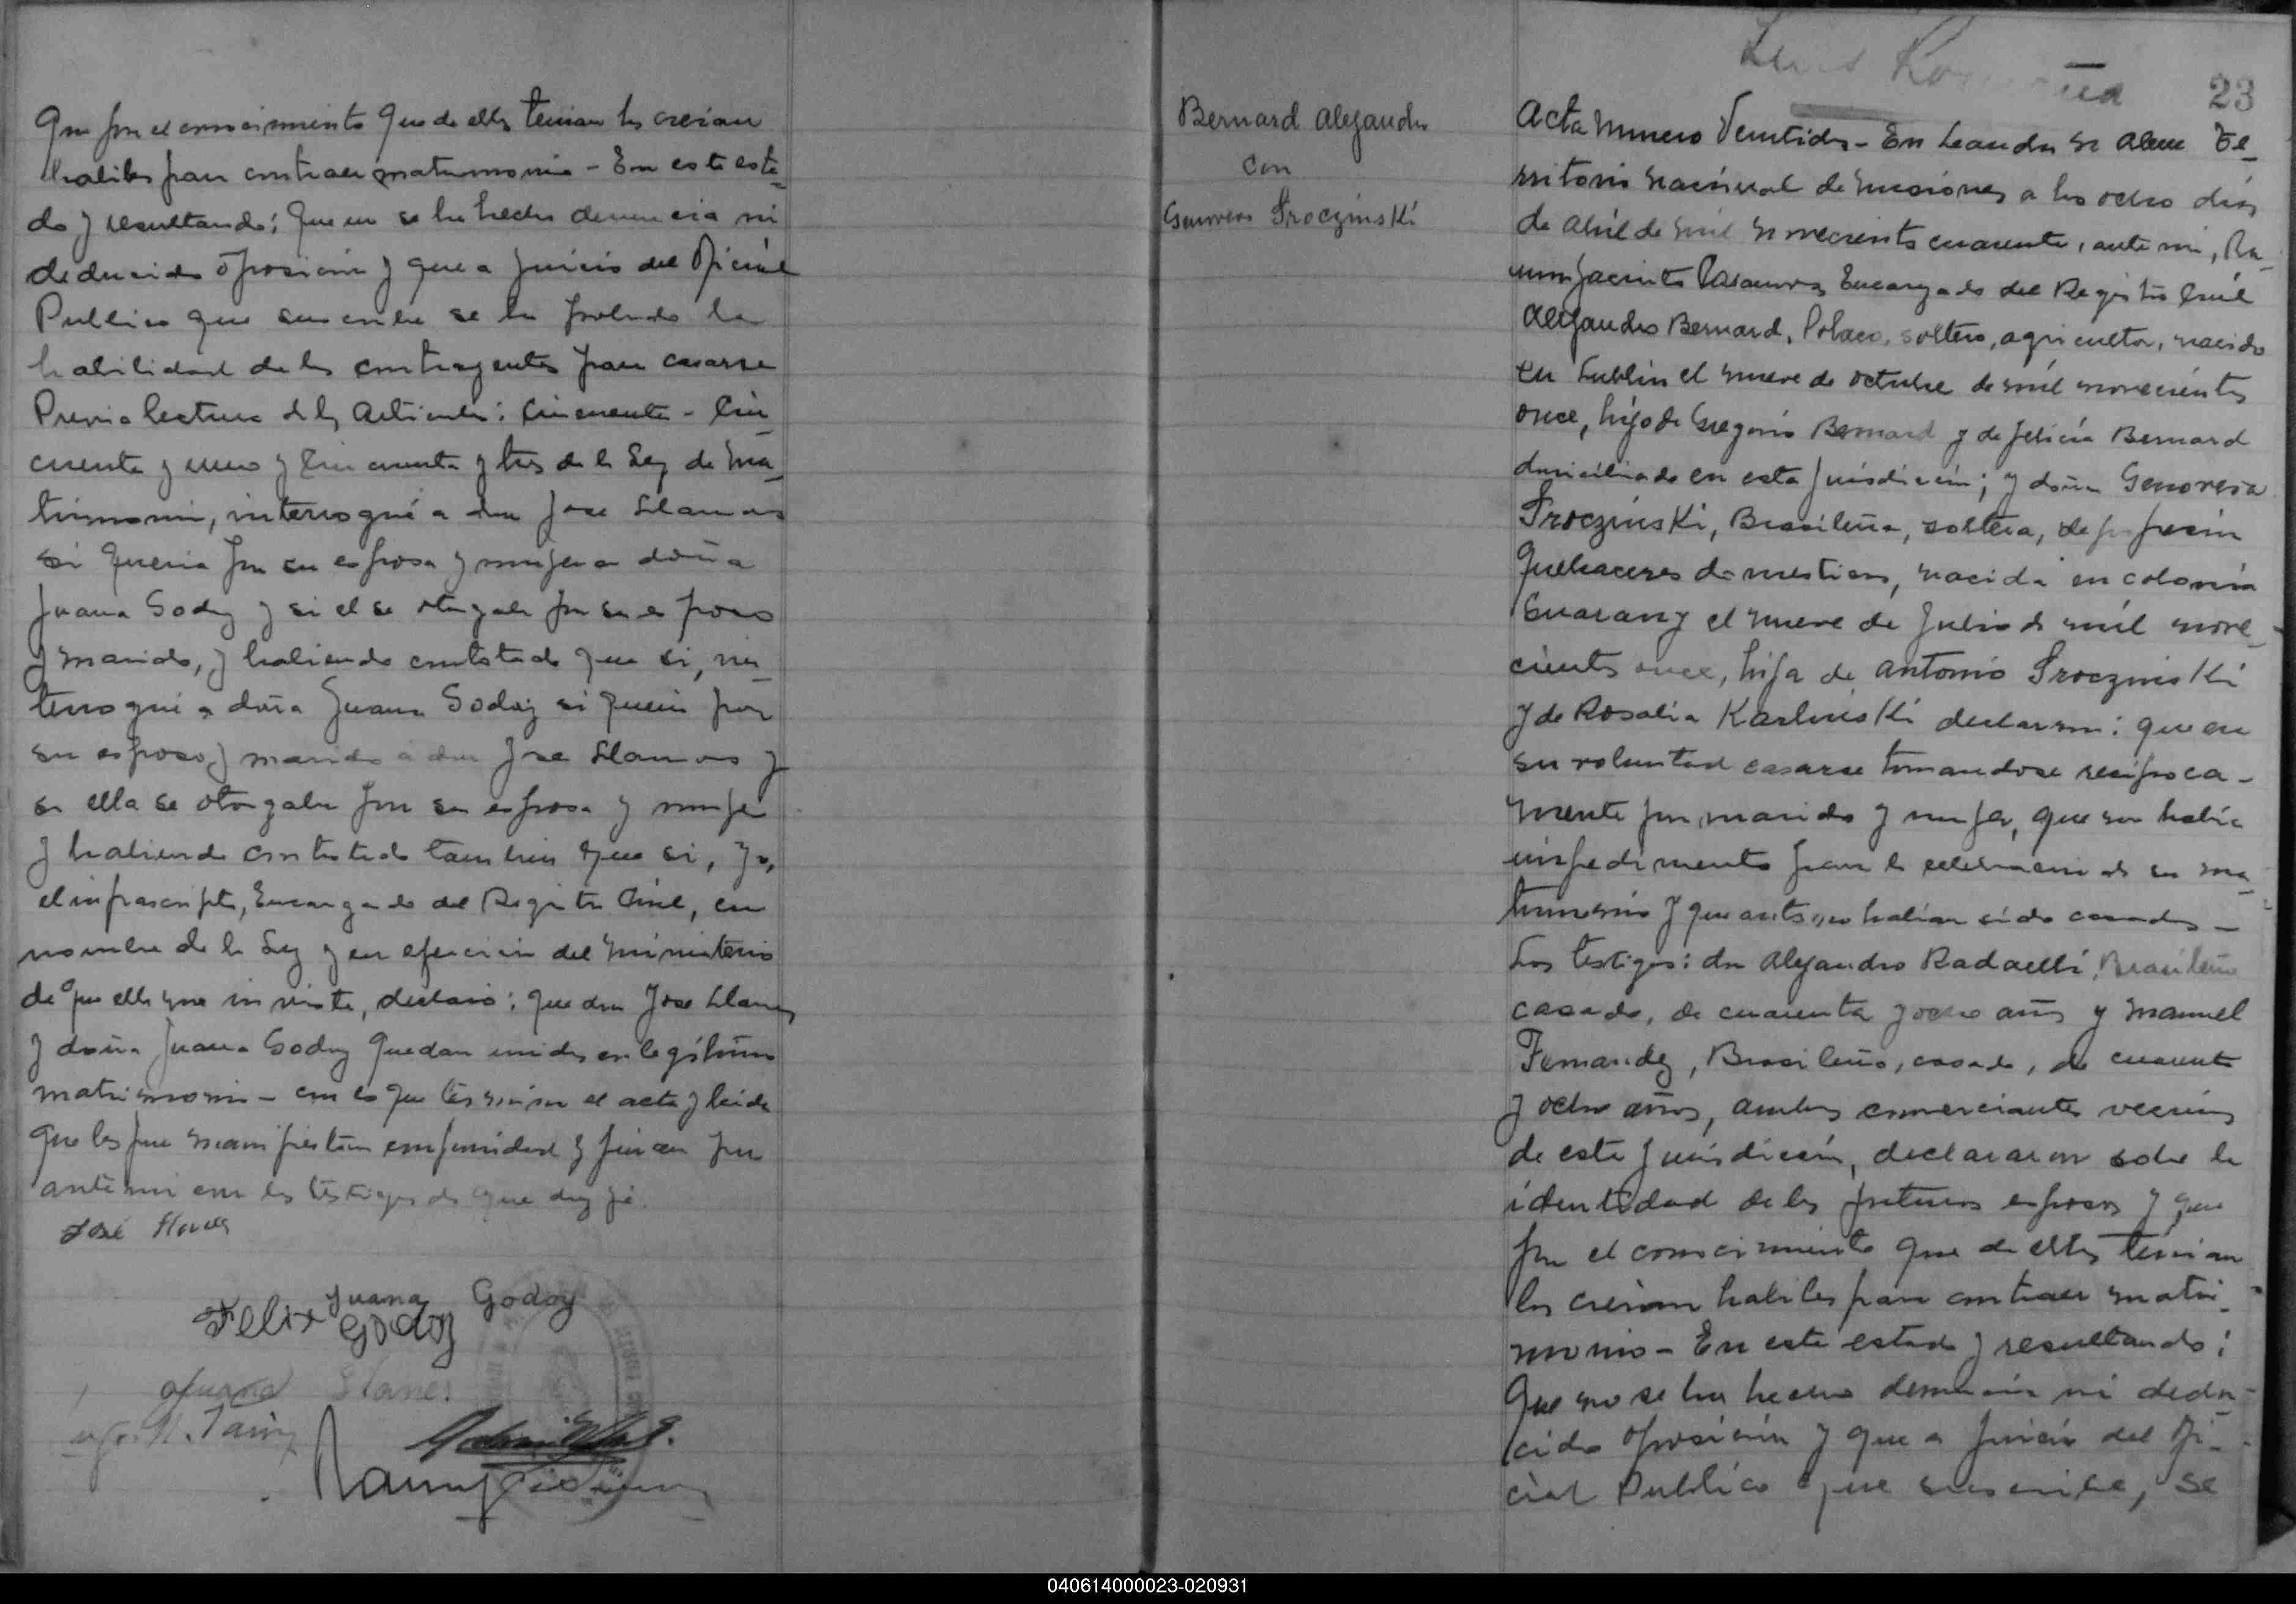 Que por el conocimiento que de ellos tenian los creian
habiles para contraer matrimonio - En este esta-
do y resultando: Que no se ha hecho denuncia ni
deducido oposicion y que a juicio del Oficial
Publico que suscribe se ha probado la
habilidad de los contrayentes para casarse
Previa lectura de los Articulos: Cincuenta - Cin-
cuenta y uno y Cincuenta y tres de la Ley de Ma-
trimonio, interrogué a don Jose Llanes
si queria por su esposa y mujer a doña
Juana Godoy y si el se otorgaba por su esposo
y marido, y habiendo contestado que si, in-
terrogué a doña Juana Godoy si queria por
su esposo y marido a don Jose Llanes y
si ella se otorgaba por su esposa y mujer
y habiendo contestado tambien que si, yo,
el infrascripto, Encargado del Registro Civil, en
nombre de la Ley y en ejercicio del ministerio
de que ella me inviste, declaro: que don Jose Llanes
y doña Juana Godoy quedan unidos en legítimo
matrimonio - con lo que termino el acta y leida
que les fue manifiestan conformidad y firman por
ante mi con los testigos de que doy fé.
José Llanes
Juana Godoy
Felix Godoy
Llanes
23
Bernard Alejandro
con
Genoveva Troczinski
Acta Numero Veintidos - En Leandro N Alem Te-
rritorio Nacional de Misiones a los ocho dias
de abril de mil novecientos cuarenta, ante mi, Ra-
mon Jacinto Encargado del Registro Civil
Alejandro Bernard, Polaco, soltero, agricultor, nacido
en Lublin el nueve de octubre de mil novecientos
once, hijo de Gregorio Bernard y de Felicia Bernard
domiciliado en esta Jurisdiccion; y doña Genoveva
Troczinski, Brasileña, soltera, de profesion
Quehaceres domesticos, nacida en colonia
Guarany el nueve de Julio de mil nove-
cientos once, hija de Antonio Troczinski
y de Rosalia Karlinski declararon: que era
su voluntad casarse tomandose recíproca-
mente por marido y mujer, que no habia
impedimento para la celebracion de su ma-
trimonio y que antes no habian sido casados -
Los testigos: don Alejandro Radaelli, Brasileño
casado, de cuarenta y ocho años y Manuel
Fernandez, Brasileño, casado, de cuarenta
y ocho años, ambos comerciantes vecinos
de esta Jurisdiccion, declararon sobre la
identidad de los futuros esposos y que
por el conocimiento que de ellos tenian
los creian habiles para contraer matri-
monio - En este estado y resultando:
Que no se ha hecho denuncia ni dedu-
cido oposición y que a juicio del Ofi-
cial Publico que suscribe, se
040614000023-020931